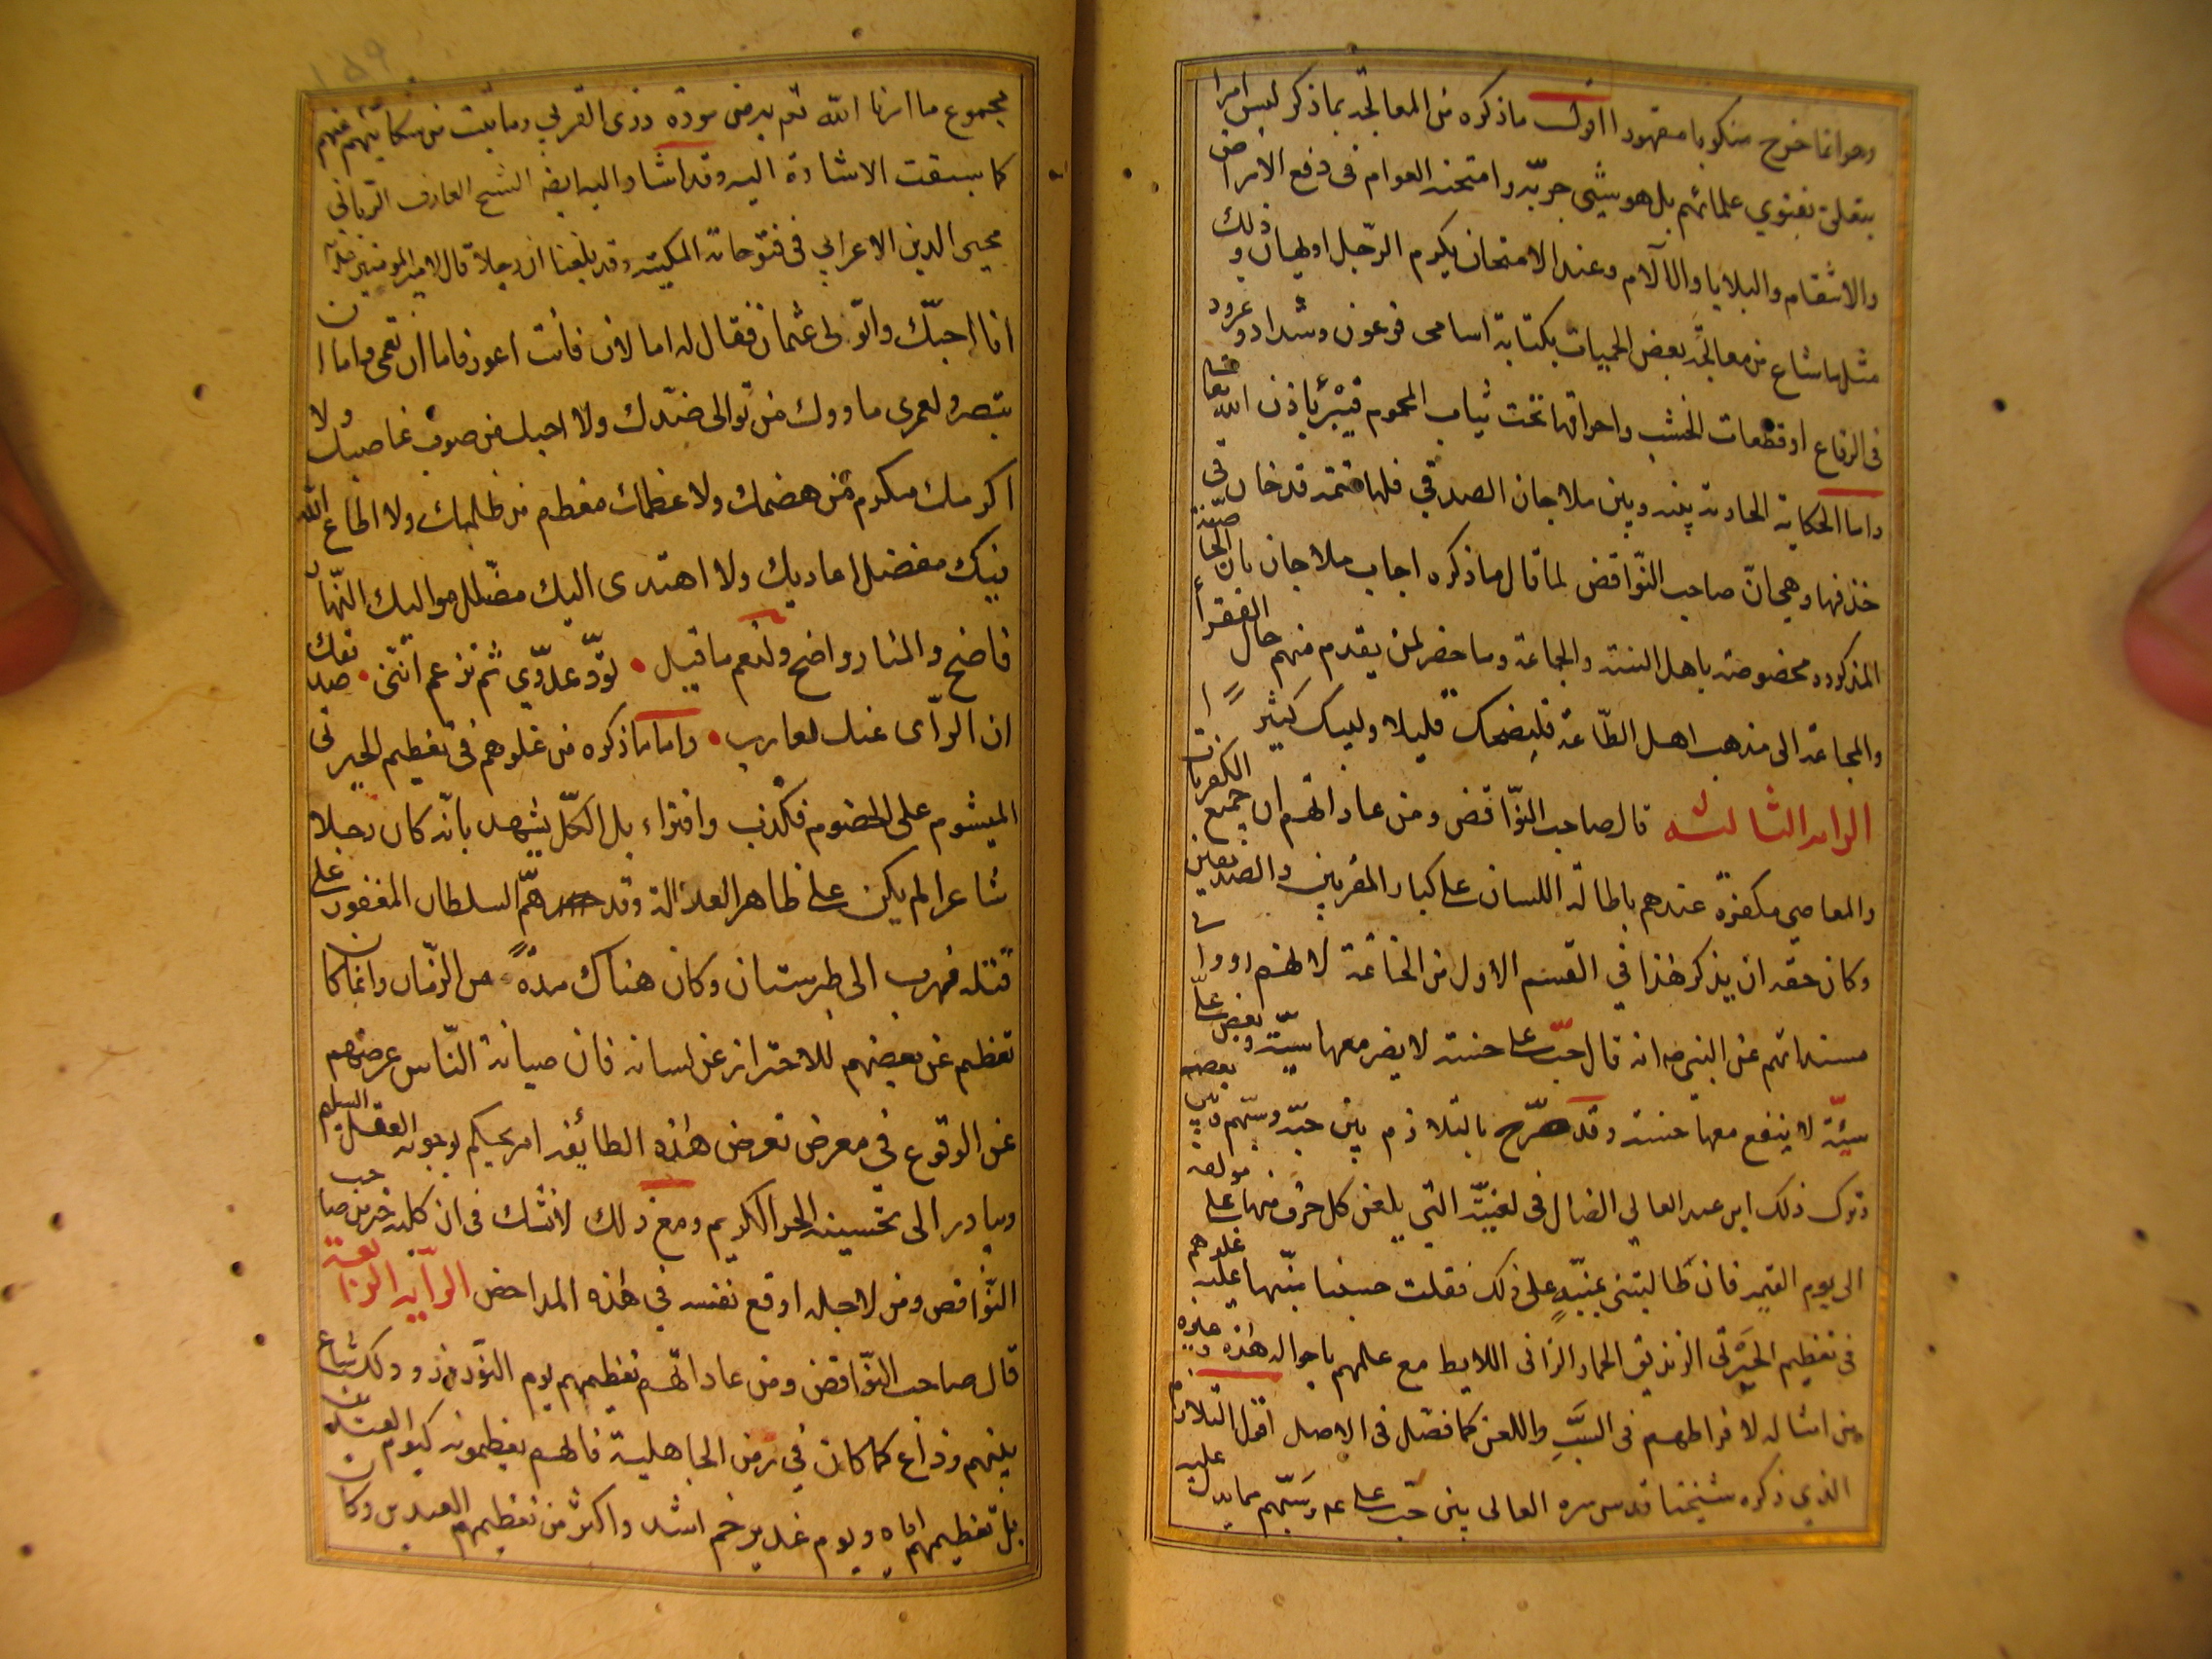 وهو انما خرج منكوبا مقهورا اقول ما ذكره من المعالجة بما ذكر ليس امرا
يتعلق بفتوي علمائهم بل هو شيئ جربه وامتحنه العوام فى دفع الامراض
والاسقام والبلايا والآلام وعند الامتحان يكرم الرجل او يهان و ذلك
مثل ما شاع من معالجة بعض الحميات بكتابة اسامى فرعون وشداد ونمرود
فى الرقاع او قطعات الخشب واحراقها تحت ثياب المحموم فيبرئ باذن الله تعالى
واما الحكاية الحادثة بينه وبين ملا جان الصدقي فلها تتمة قد خان فى
حذفها وهي ان صاحب النواقض لما قال ما ذكره اجاب ملا جان بان الخاصية
المذكورة مخصوصة باهل السنة والجماعة وما حضر لمن يقدم منهم حال الفقر
والمجاعة الى مذهب اهل الطاعة فليضحك قليلا وليبك كثيرا
الرابد الثالثه قال صاحب النواقض ومن عاداتهم ان جميع الكفريات
والمعاصي مكفرة عندهم باطالة اللسان على كبار المقربين والصديقين
وكان حقه ان يذكر هذا في القسم الاول من الخاتمة لانهم رووا فى
مسنداتهم عن النبي ص انه قال حب على حسنة لا يضر معها سيئة وبغض على
سيئة لا ينفع معها حسنة وقد صرح بالتلازم بين حبه وسبهم وبين بغضه
وترك ذلك ابن عبد العالي الضال فى لعنيته التي يلعن كل حرف منها على مولفه
الى يوم القيمة فان طالبتنى بمنبه على ذلك فقلت حسبنا منبها عليه غلوهم
فى تعظيم الحيرتى الزنديق الحمار الزانى اللايط مع علمهم باحواله هذه وغيره
من امثاله لافراطهم فى السب واللعن كما فصل فى الاصل اقول التلازم
الذي ذكره شيخنا قدس سره العالى بين حب على عم وسبهم مما يدل عليه
مجموع ما انزل الله تعم فى مودة ذوى القربي وما ثبت من شكايتهم عنهم
كما سبقت الاشارة اليه وقد اشار اليه ايضا الشيخ العارف الربانى
محيى الدين الاعرابي فى فتوحاته المكية وقد بلغنا ان رجلا قال لامير المؤمنين
انا احبك واتولى عثمان فقال له اما لان فانت اعور فاما ان تعمى واما ان
تبصر ولعمرى ما ودك من توالى ضدك ولا احبك من صوب غاصبك ولا
اكرمك مكرم من هضمك ولا عظمك معظم من ظلمك ولا اطاع الله
فيك مفضل اعاديك ولا اهتدى اليك مضلل مواليك النهار
فاضح والمنار واضح ولنعم ما قيل تود عدوي ثم تزعم اننى صديقك
ان الرأى عنك لعازب واما ما ذكره من غلوهم فى تعظيم الحيرتى
الميشوم على الخصوم فكذب وافتراء بل الكل يشهد بانه كان رجلا
شاعرا لم يكن على ظاهر العدالة وقد همّ السلطان المغفور على
قتله فهرب الى طبرستان وكان هناك مدة من الزمان وانما كان
تعظم عن بعضهم للاحتراز عن لسانه فان صيانة الناس عرضهم
عن الوقوع في معرض تعرض هذه الطائفة امر يحكم بوجوبه العقل السليم
ويبادر الى تحسينه الحر الكريم ومع ذلك لا نشك فى ان كلبه خير من صاحب
النواقض ومن لاجله اوقع نفسه في هذه المداحض الرابد الرابعة
قال صاحب النواقض ومن عاداتهم تعظيمهم يوم النوروز وذلك شاع
بينهم وذاع كما كان في زمن الجاهلية فانهم يعظمونه كيوم العيد
بل تعظيمهم اياه ويوم غدير خم اشد واكثر من تعظيمهم العيدين وكان